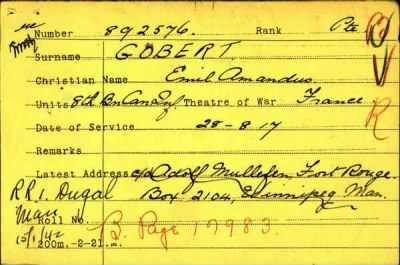 Number 892576. Rank Pte
Surname GOBERT.
Christian Name Emil Amandus.
Units 8th Bn Can Inf. Theatre of War France
Date of Service 28-8-17
Remarks
Latest Address c/o Adolf Mullefen, Fort Rouge.
R R 1. Dugal Box 2104, Winnipeg Man.
Man
Roll No. B. Page 17983.
15/1/42
200m.-2-21.m.
B
V
R